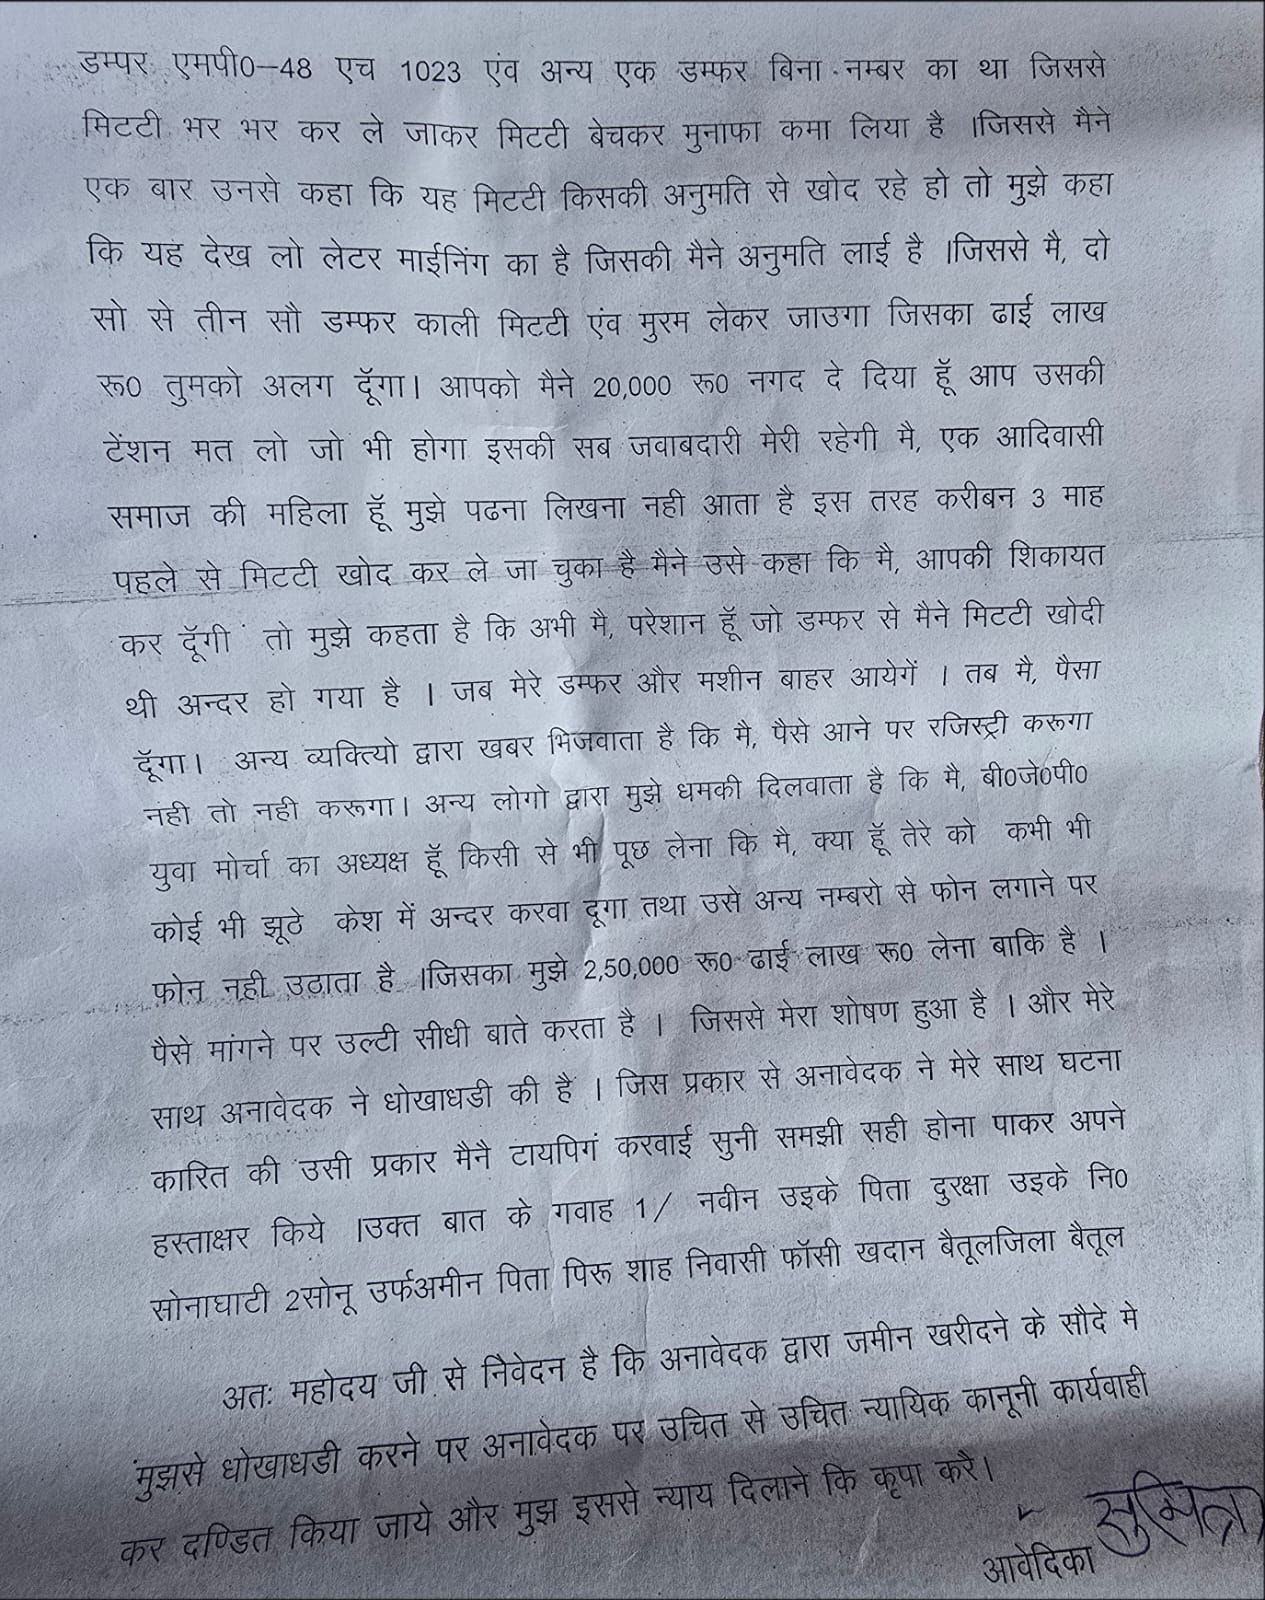 डम्पर एमपी0–48 एच 1023 एंव अन्य एक डम्फर बिना नम्बर का था जिससे
मिटटी भर भर कर ले जाकर मिटटी बेचकर मुनाफा कमा लिया है ।जिससे मैने
एक बार उनसे कहा कि यह मिटटी किसकी अनुमति से खोद रहे हो तो मुझे कहा
कि यह देख लो लेटर माईनिंग का है जिसकी मैने अनुमति लाई है ।जिससे मै, दो
सो से तीन सौ डम्फर काली मिटटी एंव मुरम लेकर जाउगा जिसका ढाई लाख
रू0 तुमको अलग दूॅगा। आपको मैने 20,000 रू0 नगद दे दिया हूॅ आप उसकी
टेंशन मत लो जो भी होगा इसकी सब जवाबदारी मेरी रहेगी मै, एक आदिवासी
समाज की महिला हूॅ मुझे पढना लिखना नही आता है इस तरह करीबन 3 माह
पहले से मिटटी खोद कर ले जा चुका है मैने उसे कहा कि मै, आपकी शिकायत
कर दूॅगी तो मुझे कहता है कि अभी मै, परेशान हूॅ जो डम्फर से मैने मिटटी खोदी
थी अन्दर हो गया है । जब मेरे डम्फर और मशीन बाहर आयेगें । तब मै, पैसा
दूॅगा। अन्य व्यक्तियो द्वारा खबर भिजवाता है कि मै, पैसे आने पर रजिस्ट्री करूगा
नही तो नही करूगा। अन्य लोगो द्वारा मुझे धमकी दिलवाता है कि मै, बी0जे0पी0
युवा मोर्चा का अध्यक्ष हूॅ किसी से भी पूछ लेना कि मै, क्या हूॅ तेरे को कभी भी
कोई भी झूठे केश में अन्दर करवा दूगा तथा उसे अन्य नम्बरो से फोन लगाने पर
फोन नही उठाता है ।जिसका मुझे 2,50,000 रू0 ढाई लाख रू0 लेना बाकि है ।
पैसे मांगने पर उल्टी सीधी बाते करता है । जिससे मेरा शोषण हुआ है । और मेरे
साथ अनावेदक ने धोखाधडी की है । जिस प्रकार से अनावेदक ने मेरे साथ घटना
कारित की उसी प्रकार मैनै टायपिगं करवाई सुनी समझी सही होना पाकर अपने
हस्ताक्षर किये ।उक्त बात के गवाह 1/ नवीन उइके पिता दुरक्षा उइके नि0
सोनाघाटी 2सोनू उर्फअमीन पिता पिरू शाह निवासी फॉसी खदान बैतूलजिला बैतूल
अतः महोदय जी से निवेदन है कि अनावेदक द्वारा जमीन खरीदने के सौदे मे
मुझसे धोखाधडी करने पर अनावेदक पर उचित से उचित न्यायिक कानूनी कार्यवाही
कर दण्डित किया जाये और मुझ इससे न्याय दिलाने कि कृपा करै।
सुमित्रा
आवेदिका